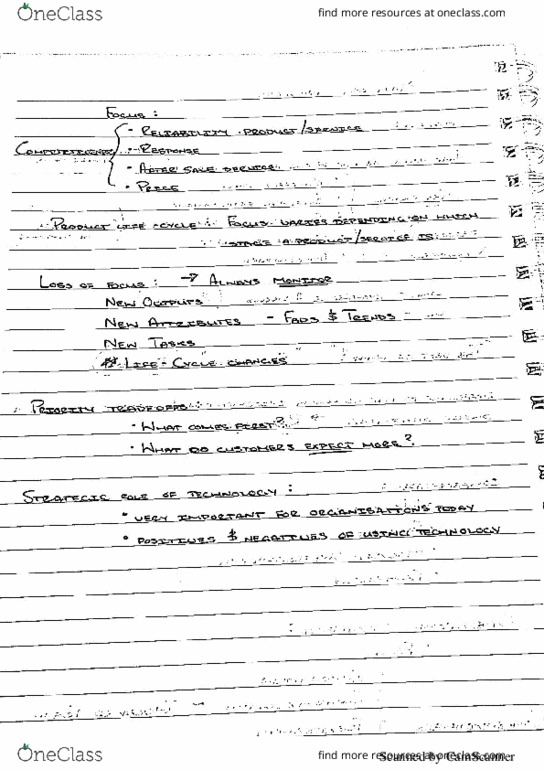 OneClass
find more resources at oneclass.com
Focus :
- Reliability product/service
Competitiveness - Response
- After sale service
• Price
Product life-cycle : Focus varies depending on which
stage a product/service is
Loss of focus : → Always monitor
New Outputs
New Attributes - Fads & Trends
New Tasks
Life-Cycle changes
Priority tradeoffs
• What comes first?
• What do customers expect more?
Strategic role of technology :
• very important for organisations today
• positives & negatives of using technology
OneClass
find more resources at oneclass.com
Scanned by CamScanner